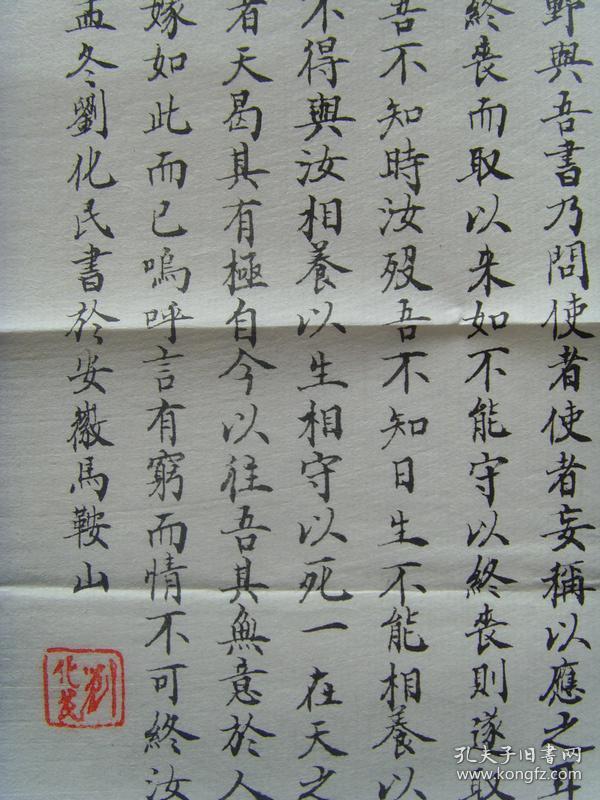 野與吾書乃問使者使者妄稱以應之耳
終喪而取以来如不能守以終喪則遂取
吾不知時汝歿吾不知日生不能相養以
不得與汝相養以生相守以死一在天之
者天曷其有極自今以往吾其無意於人
嫁如此而已嗚呼言有窮而情不可終汝
孟冬劉化民書於安徽馬鞍山
劉化民
孔夫子旧書网
www.kongfz.com